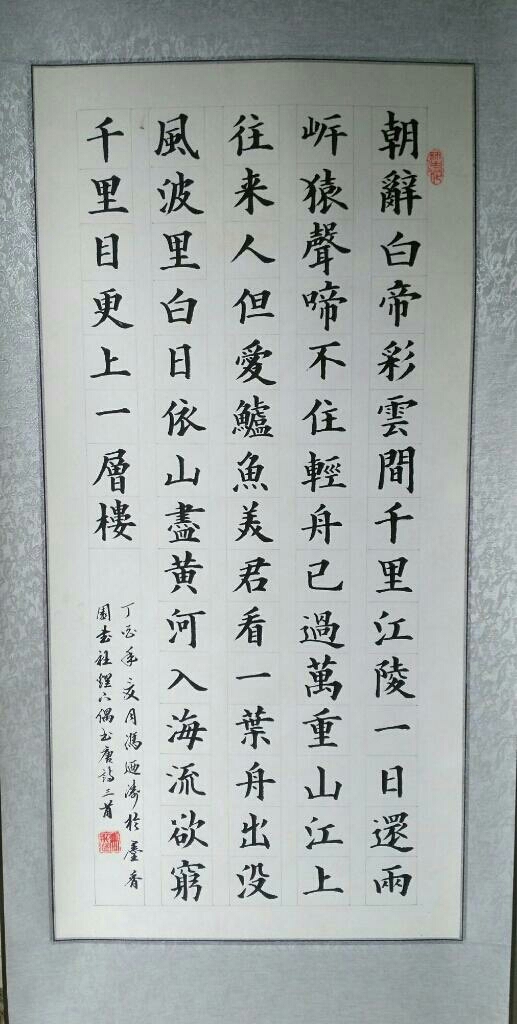 朝辭白帝彩雲間千里江陵一日還兩
岍猿聲啼不住輕舟已過萬重山江上
往来人但愛鱸魚美君看一葉舟出没
風波里白日依山盡黄河入海流欲窮
千里目更上一層樓
丁酉年夏月馮廼濤於墨香
園書社 偶書唐詩三首